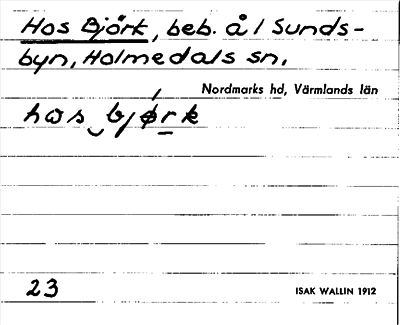 Hos Björk, beb. å / Sunds-
byn, Holmedals sn.
Nordmarks hd, Värmlands län
hɷs‿bjǿrk
23
ISAK WALLIN 1912